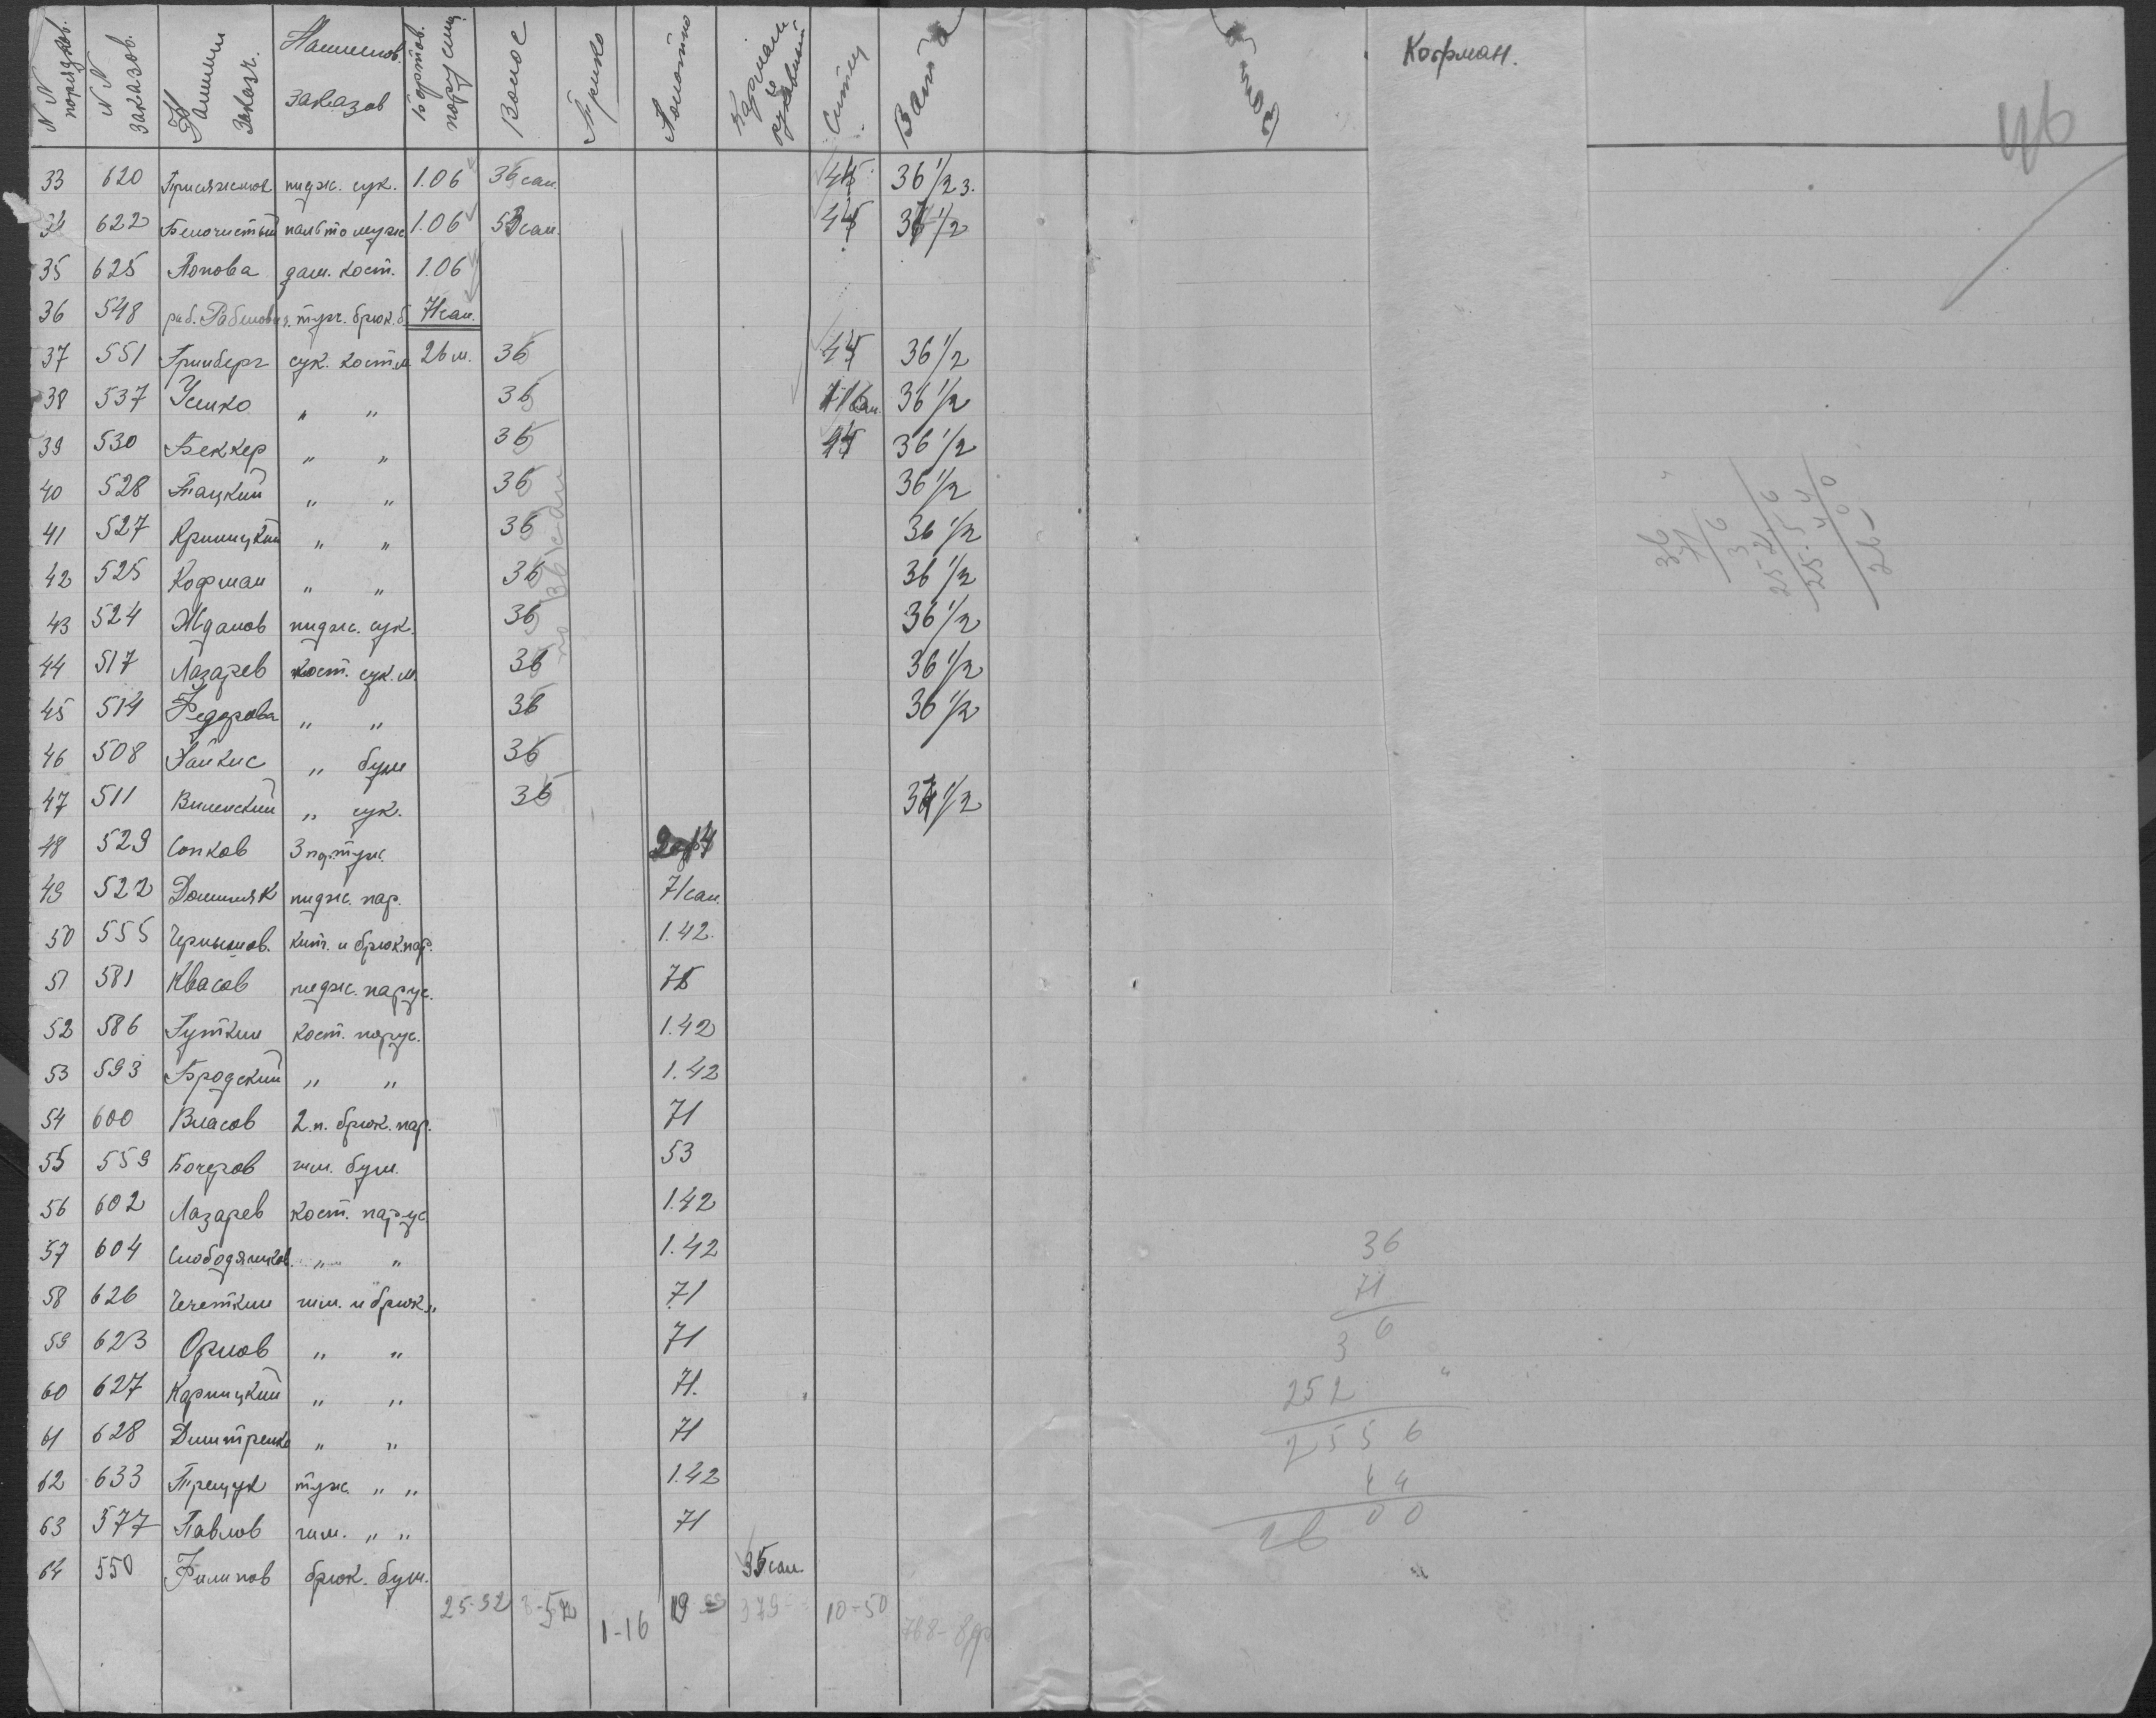 NN порядков. NN заказов. Фамилии заказч. Наименов. заказов Бортов. парусин. Волос Трико Полотно Карман и рукавный Ситец Вата
Кофман.
46
33 620 пидж. сук. 1.06 36 сан. 45 36 1/2 з.
34 622 Белочистый пальто муж 1.06 53 сан. 45 37 1/2
35 625 Попова дам. кост. 1.06
36 548 раб. туж. брюк. б. 71 сан.
37 551 Гринберг сук. костм 26 м. 36 44 36 1/2
38 537 Усенко " " 36 36 1/2
39 530 Беккер " " 36 44 36 1/2
40 528 Тацкий " " 36 36 1/2
41 527 Криницкий " " 36 36 1/2
42 525 Кофман " " 36 36 1/2
43 524 Жданов пидж. сук. 36 36 1/2
44 517 Лазарев кост. сук. м. 36 36 1/2
45 514 Федорова " " 36 36 1/2
46 508 Файкис " бум 36
47 511 Виленский " сук. 36 37 1/2
по 36 сан
48 529 Сопков 3 пар. туж. 2.14
49 522 пидж. пар. 71 сан.
50 555 Чернышов. кит. и брюк. пар. 1.42
51 581 Квасов пидж. парус. 75
52 586 Гуткин кост. парус. 1.42
53 593 Бродский " " 1.42
54 600 Власов 2. п. брюк. пар. 71
55 559 Бочаров гим. бум. 53
56 602 Лазарев кост. парус. 1.42
57 604 Слободяников. " " 1.42
58 626 Чечеткин гим. и брюк. " 71
59 623 Орлов " " 71
60 627 Карпицкий " " 71.
61 628 Дмитренко " " 71
62 633 Трещук туж. " " 1.42
63 577 Павлов гим. " " 71
64 550 Филипов брюк. бум. 35 сан
25-92 1-16 19 379 10-50 768-8
36
71
3 6
252
2556
44
26 00
36
71
3 6
252
25.56
44
2600